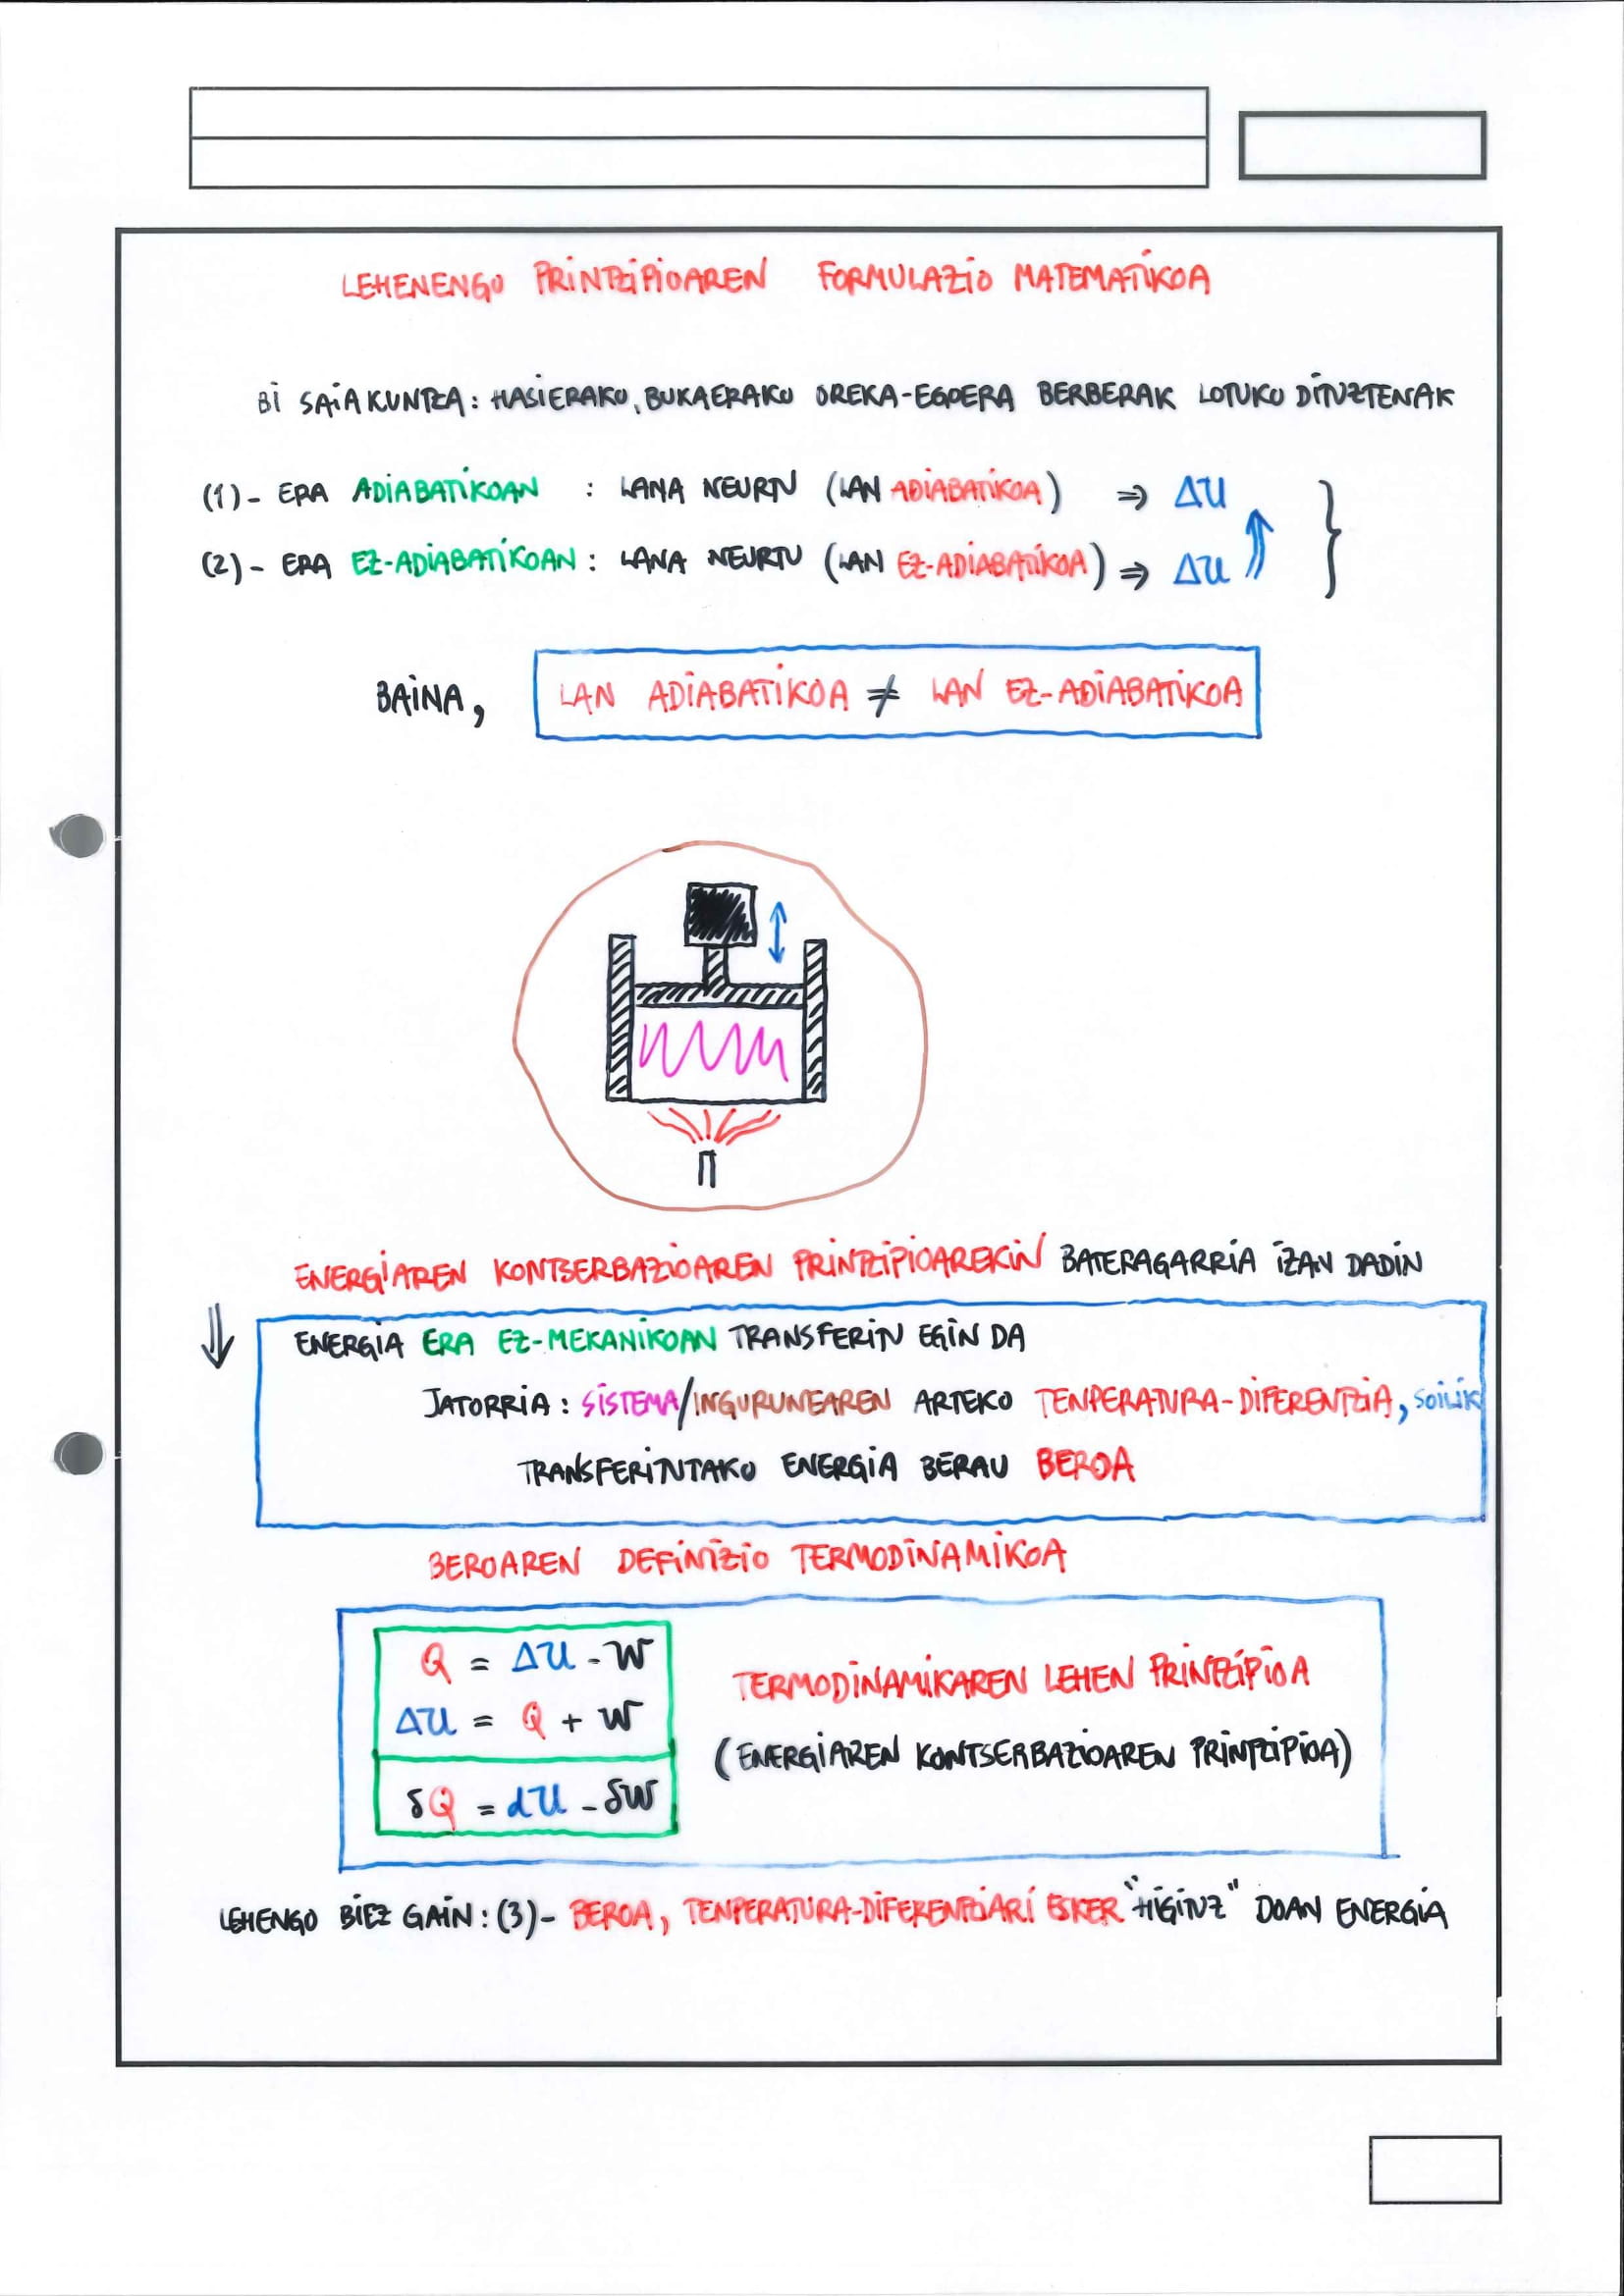 LEHENENGO PRINTZIPIOAREN FORMULAZIO MATEMATIKOA
BI SAIAKUNTZA: HASIERAKO, BUKAERAKO OREKA-EGOERA BERBERAK LOTUKO DITUZTENAK
(1)- ERA ADIABATIKOAN : LANA NEURTU (LAN ADIABATIKOA) ⇒ ΔU
(2)- ERA EZ-ADIABATIKOAN : LANA NEURTU (LAN EZ-ADIABATIKOA) ⇒ ΔU
BAINA, LAN ADIABATIKOA ≠ LAN EZ-ADIABATIKOA
ENERGIAREN KONTSERBAZIOAREN PRINTZIPIOAREKIN BATERAGARRIA IZAN DADIN
ENERGIA ERA EZ-MEKANIKOAN TRANSFERITU EGIN DA
JATORRIA : SISTEMA/INGURUNEAREN ARTEKO TENPERATURA-DIFERENTZIA, SOILIK
TRANSFERITUTAKO ENERGIA BERAU BEROA
BEROAREN DEFINIZIO TERMODINAMIKOA
Q = ΔU - W
ΔU = Q + W
δQ = dU - δW
TERMODINAMIKAREN LEHEN PRINTZIPIOA
(ENERGIAREN KONTSERBAZIOAREN PRINTZIPIOA)
LEHENGO BIEZ GAIN : (3)- BEROA, TENPERATURA-DIFERENTZIARI ESKER "HIGITUZ" DOAN ENERGIA